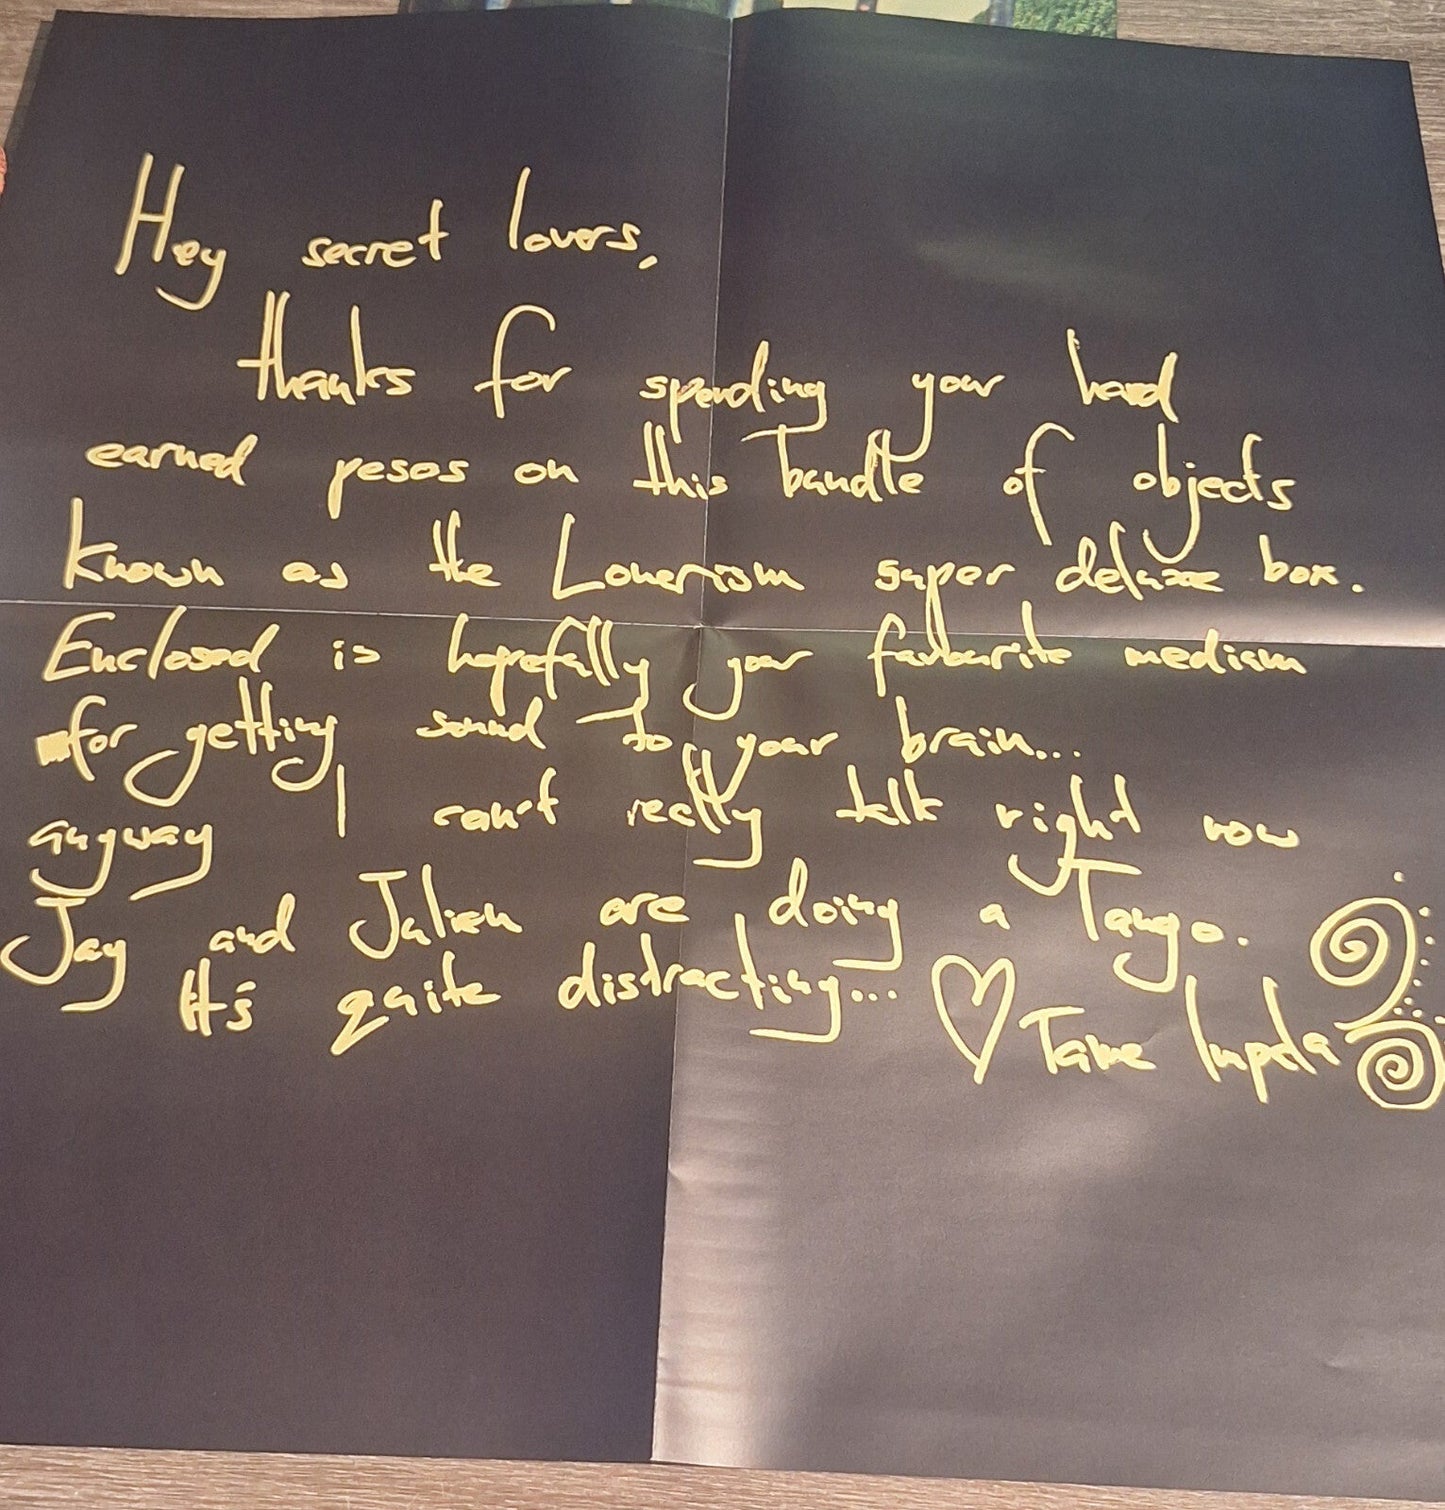 Hey secret lovers,
thanks for spending your hard
earned pesos on this bundle of objects
known as the Lonerism super deluxe box.
Enclosed is hopefully your favourite medium
for getting sound to your brain...
anyway I can't really talk right now
Jay and Julien are doing a Tango.
It's quite distracting... ♡ Tame Impala